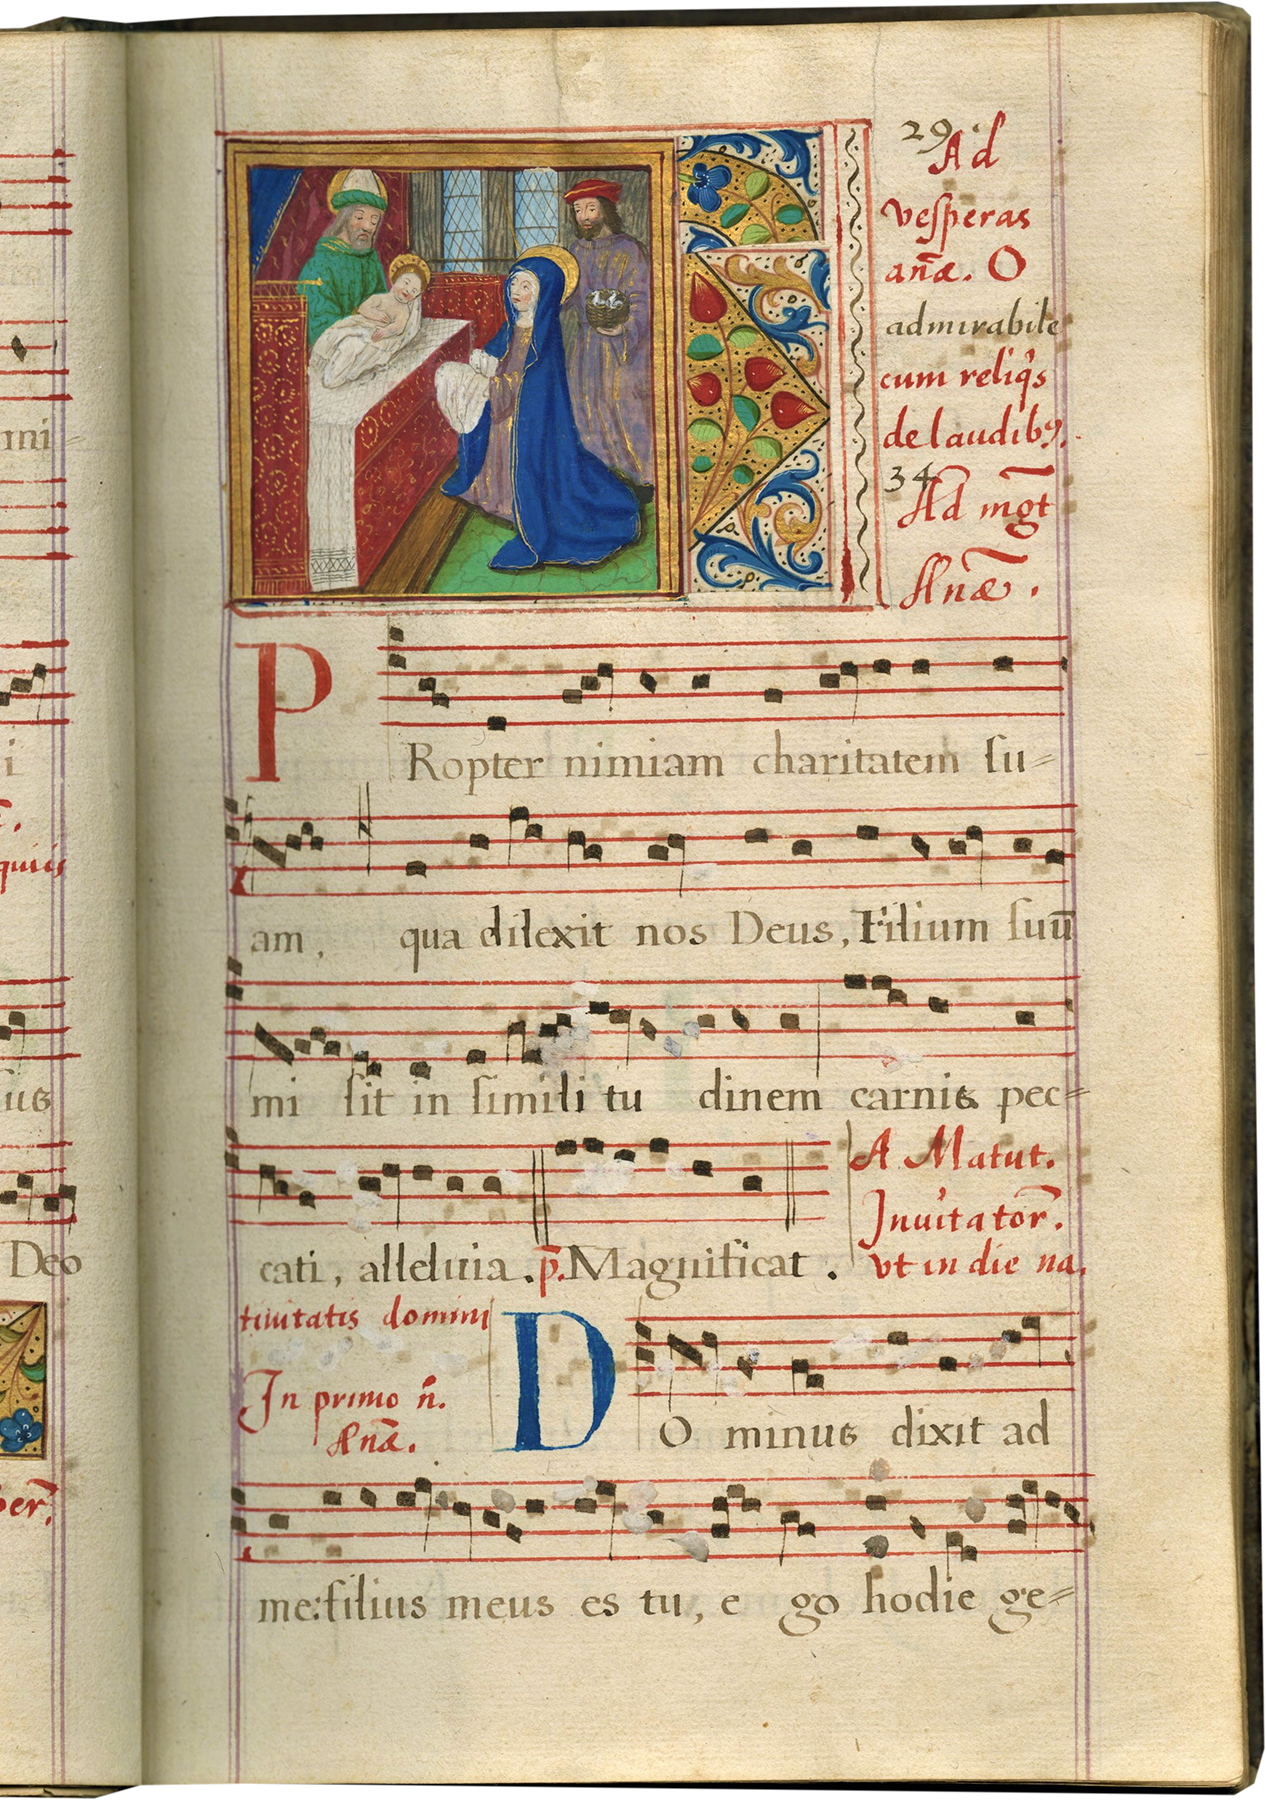 29
Ad
vesperas
anæ̃. O
admirabile
cum reliq̃s
de laudibꝰ.
34
Ad mg̃t
Anæ̃.
P
Ropter nimiam charitatem ſu=
am, qua dilexit nos Deus, Filium ſuũ
mi ſit in ſimili tu dinem carnis pec=
cati, alleluia. p̃. Magnificat.
A Matut.
Inuitator̃.
vt in die na
tiuitatis domini
In primo ñ.
Anæ̃.
D
O minus dixit ad
me: filius meus es tu, e go hodie ge=
mi=
i
quiis
us
Deo
per̃.